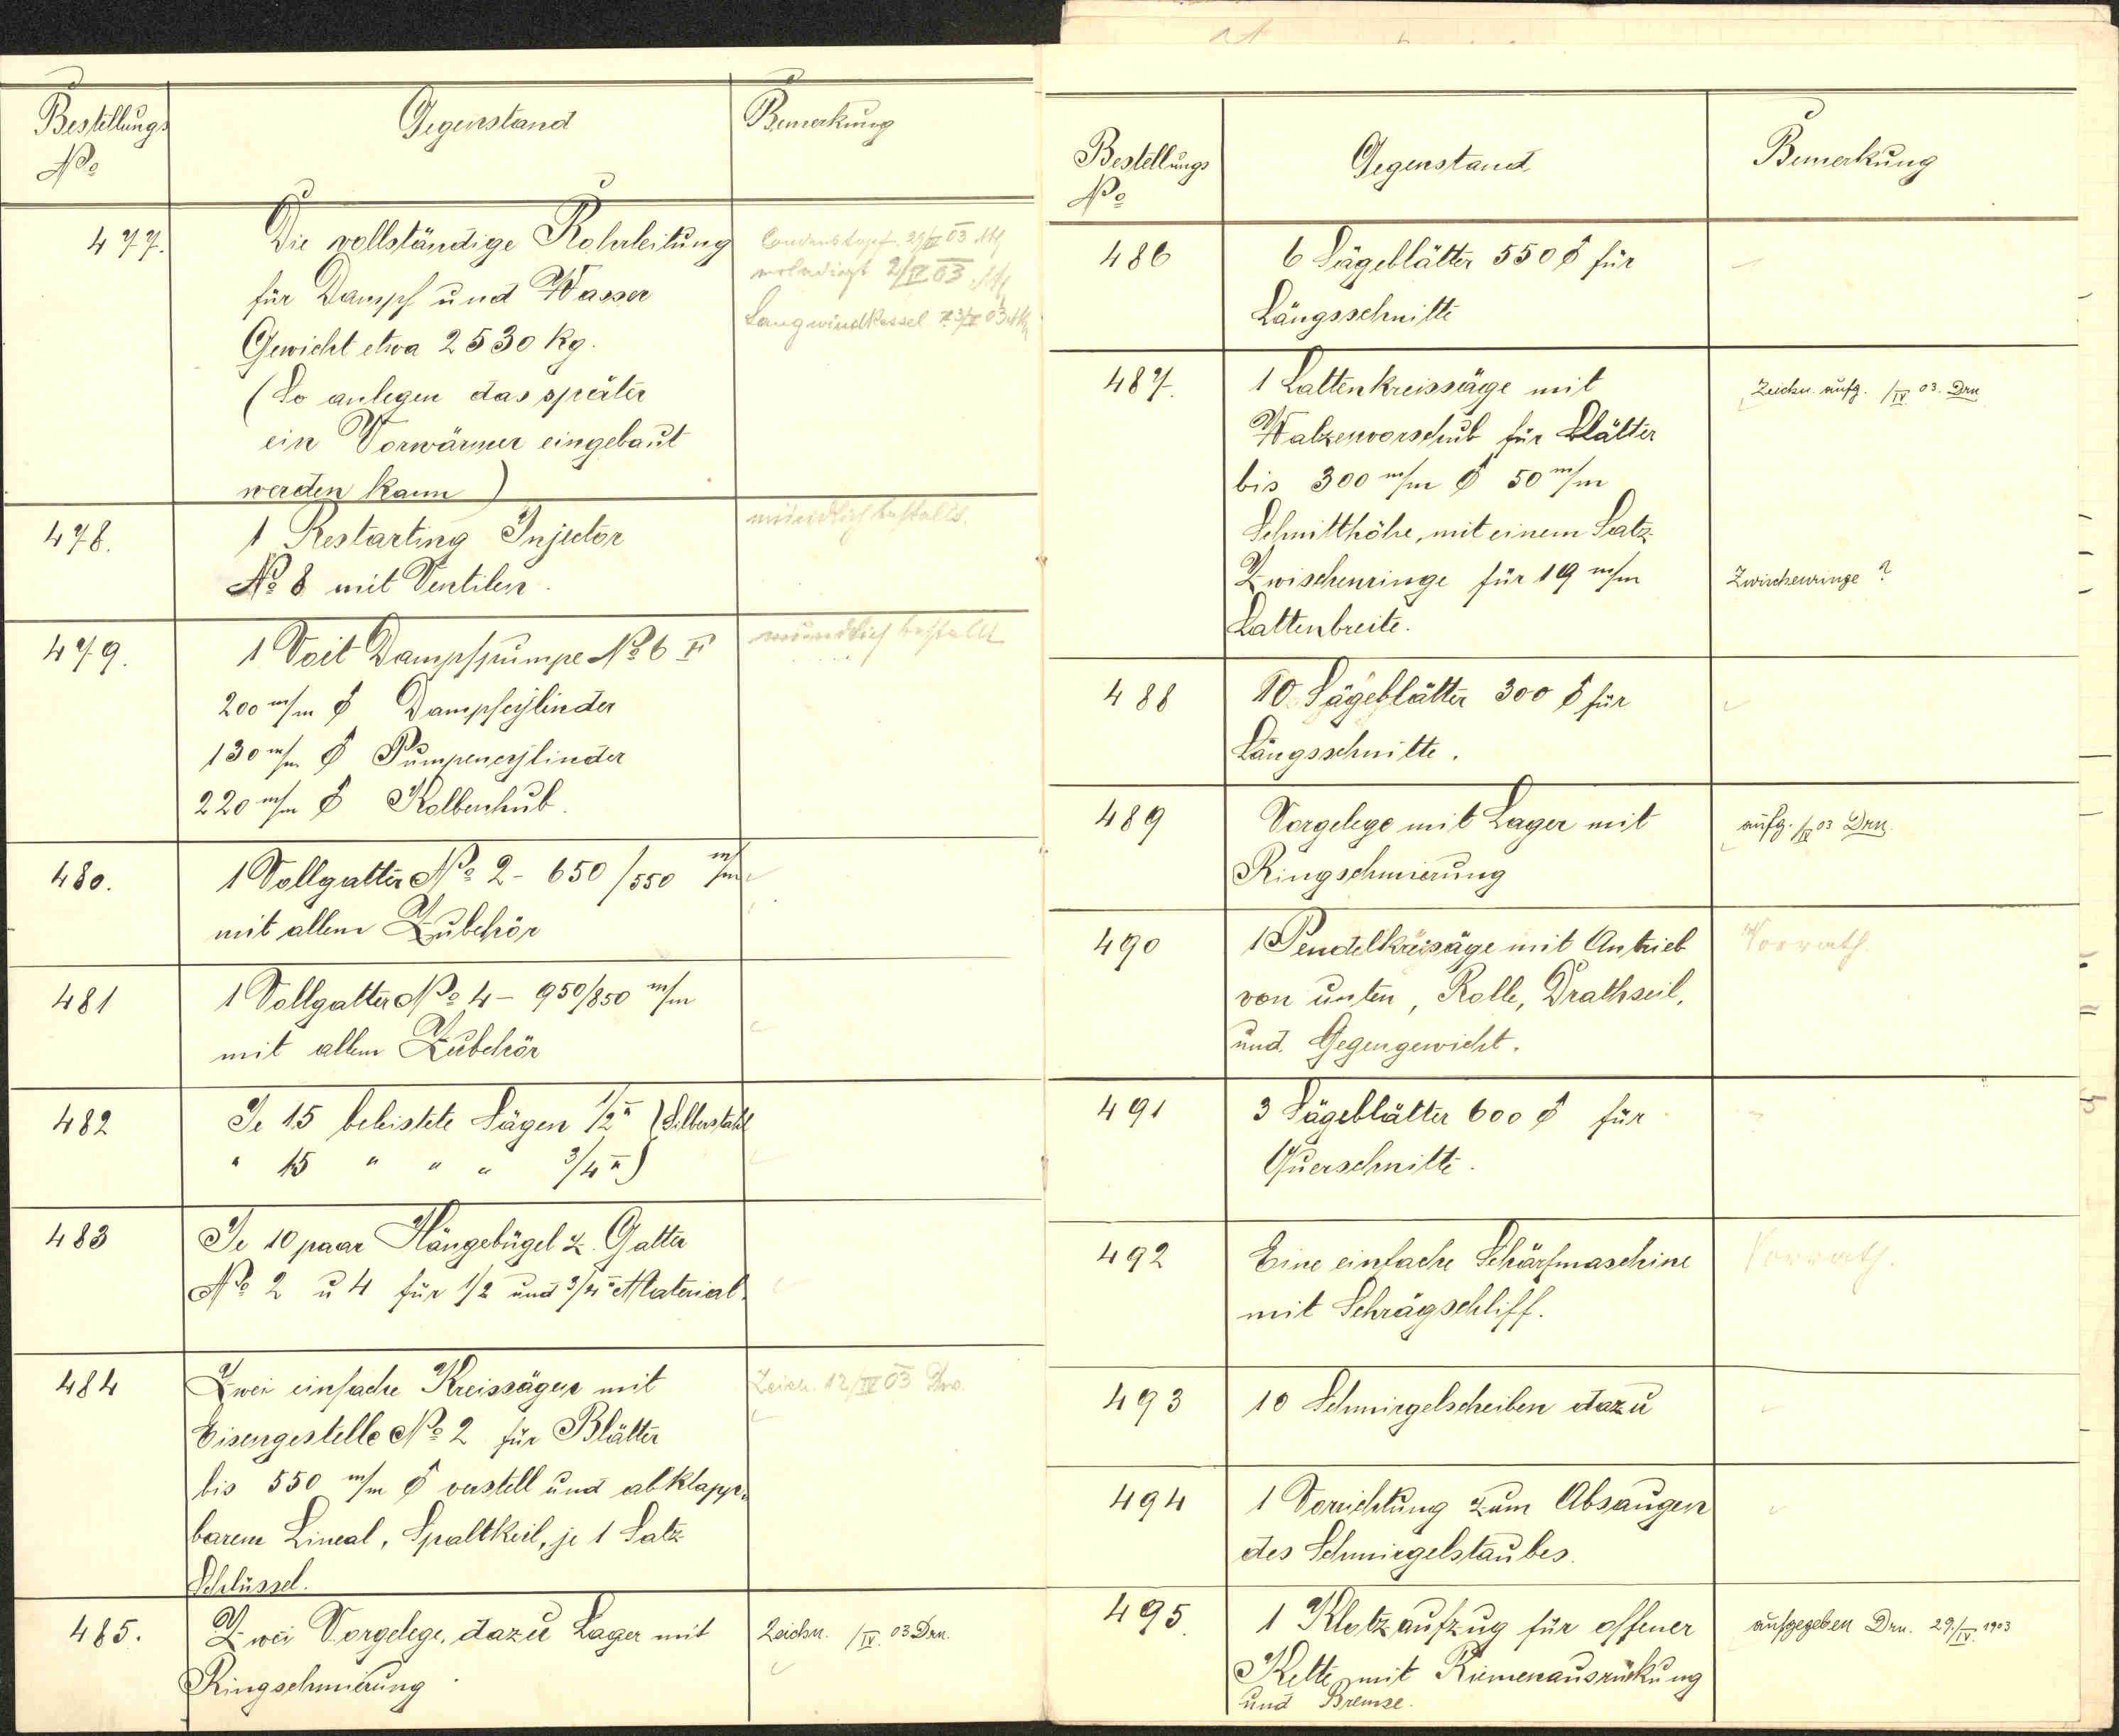 Bestellungs
No
Gegenstand
Bemerkung
477.
Die vollständige Rohrleitung
für Dampf und Wasser
Gewicht etwa 2530 kg.
(So anlegen das später
ein Vorwärmer eingebaut
werden kann)
Condenstopf 29/IV 03
2/IV 03
Saugwindkessel 03
478.
1 Restarting Injector
No 8 mit Ventilen.
mündlich bestellt.
479.
1 Voit Dampfpumpe No 6 II
200 m/m ∅ Dampfcylinder
130 m/m ∅ Pumpencylinder
220 m/m ∅ Kolbenhub.
mündlich bestellt
480.
1 Vollgatter No 2 - 650/550 m/m
mit allem Zubehör
481
1 Vollgatter No 4 - 950/850 m/m
mit allem Zubehör
482
Je 15 beleistete Sägen 1/2" (Silberstahl
" 15 " " " 3/4")
483
Je 10 paar Hängebügel z. Gatter
No 2 u 4 für 1/2 und 3/4" Material.
484
Zwei einfache Kreissägen mit
Eisengestelle No 2 für Blätter
bis 550 m/m ∅ verstell und abklapp-
barem Lineal, Spaltkeil, je 1 Satz
Schlüssel.
Zeich. 12/IV 03 Drn.
485.
Zwei Vorgelege, dazu Lager mit
Ringschmierung.
Zeichn. /IV. 03 Drn.
Bestellungs
No
Gegenstand
Bemerkung
486
6 Sägeblätter 550 ∅ für
Längsschnitte
487.
1 Lattenkreissäge mit
Walzenvorschub für Blätter
bis 300 m/m ∅ 50 m/m
Schnitthöhe, mit einem Satz
Zwischenringe für 19 m/m
Lattenbreite.
Zeichn. aufg. /IV 03. Drn
Zwischenringe ?
488
10 Sägeblätter 300 ∅ für
Längsschnitte.
489
Vorgelege mit Lager mit
Ringschmierung
aufg. /IV 03 Drn.
490
1 Pendelkreisäge mit Antrieb
von unten, Rolle, Drathseil,
und Gegengewicht.
Vorrath.
491
3 Sägeblätter 600 ∅ für
Querschnitte.
492
Eine einfache Schärfmaschine
mit Schrägschliff.
Vorrath.
493
10 Schmirgelscheiben dazu
494
1 Vorrichtung zum Absaugen
des Schmirgelstaubes.
495.
1 Klotzaufzug für offener
Kette mit Riemenausrückung
und Bremse.
aufgegeben Drn. 29./IV. 1903